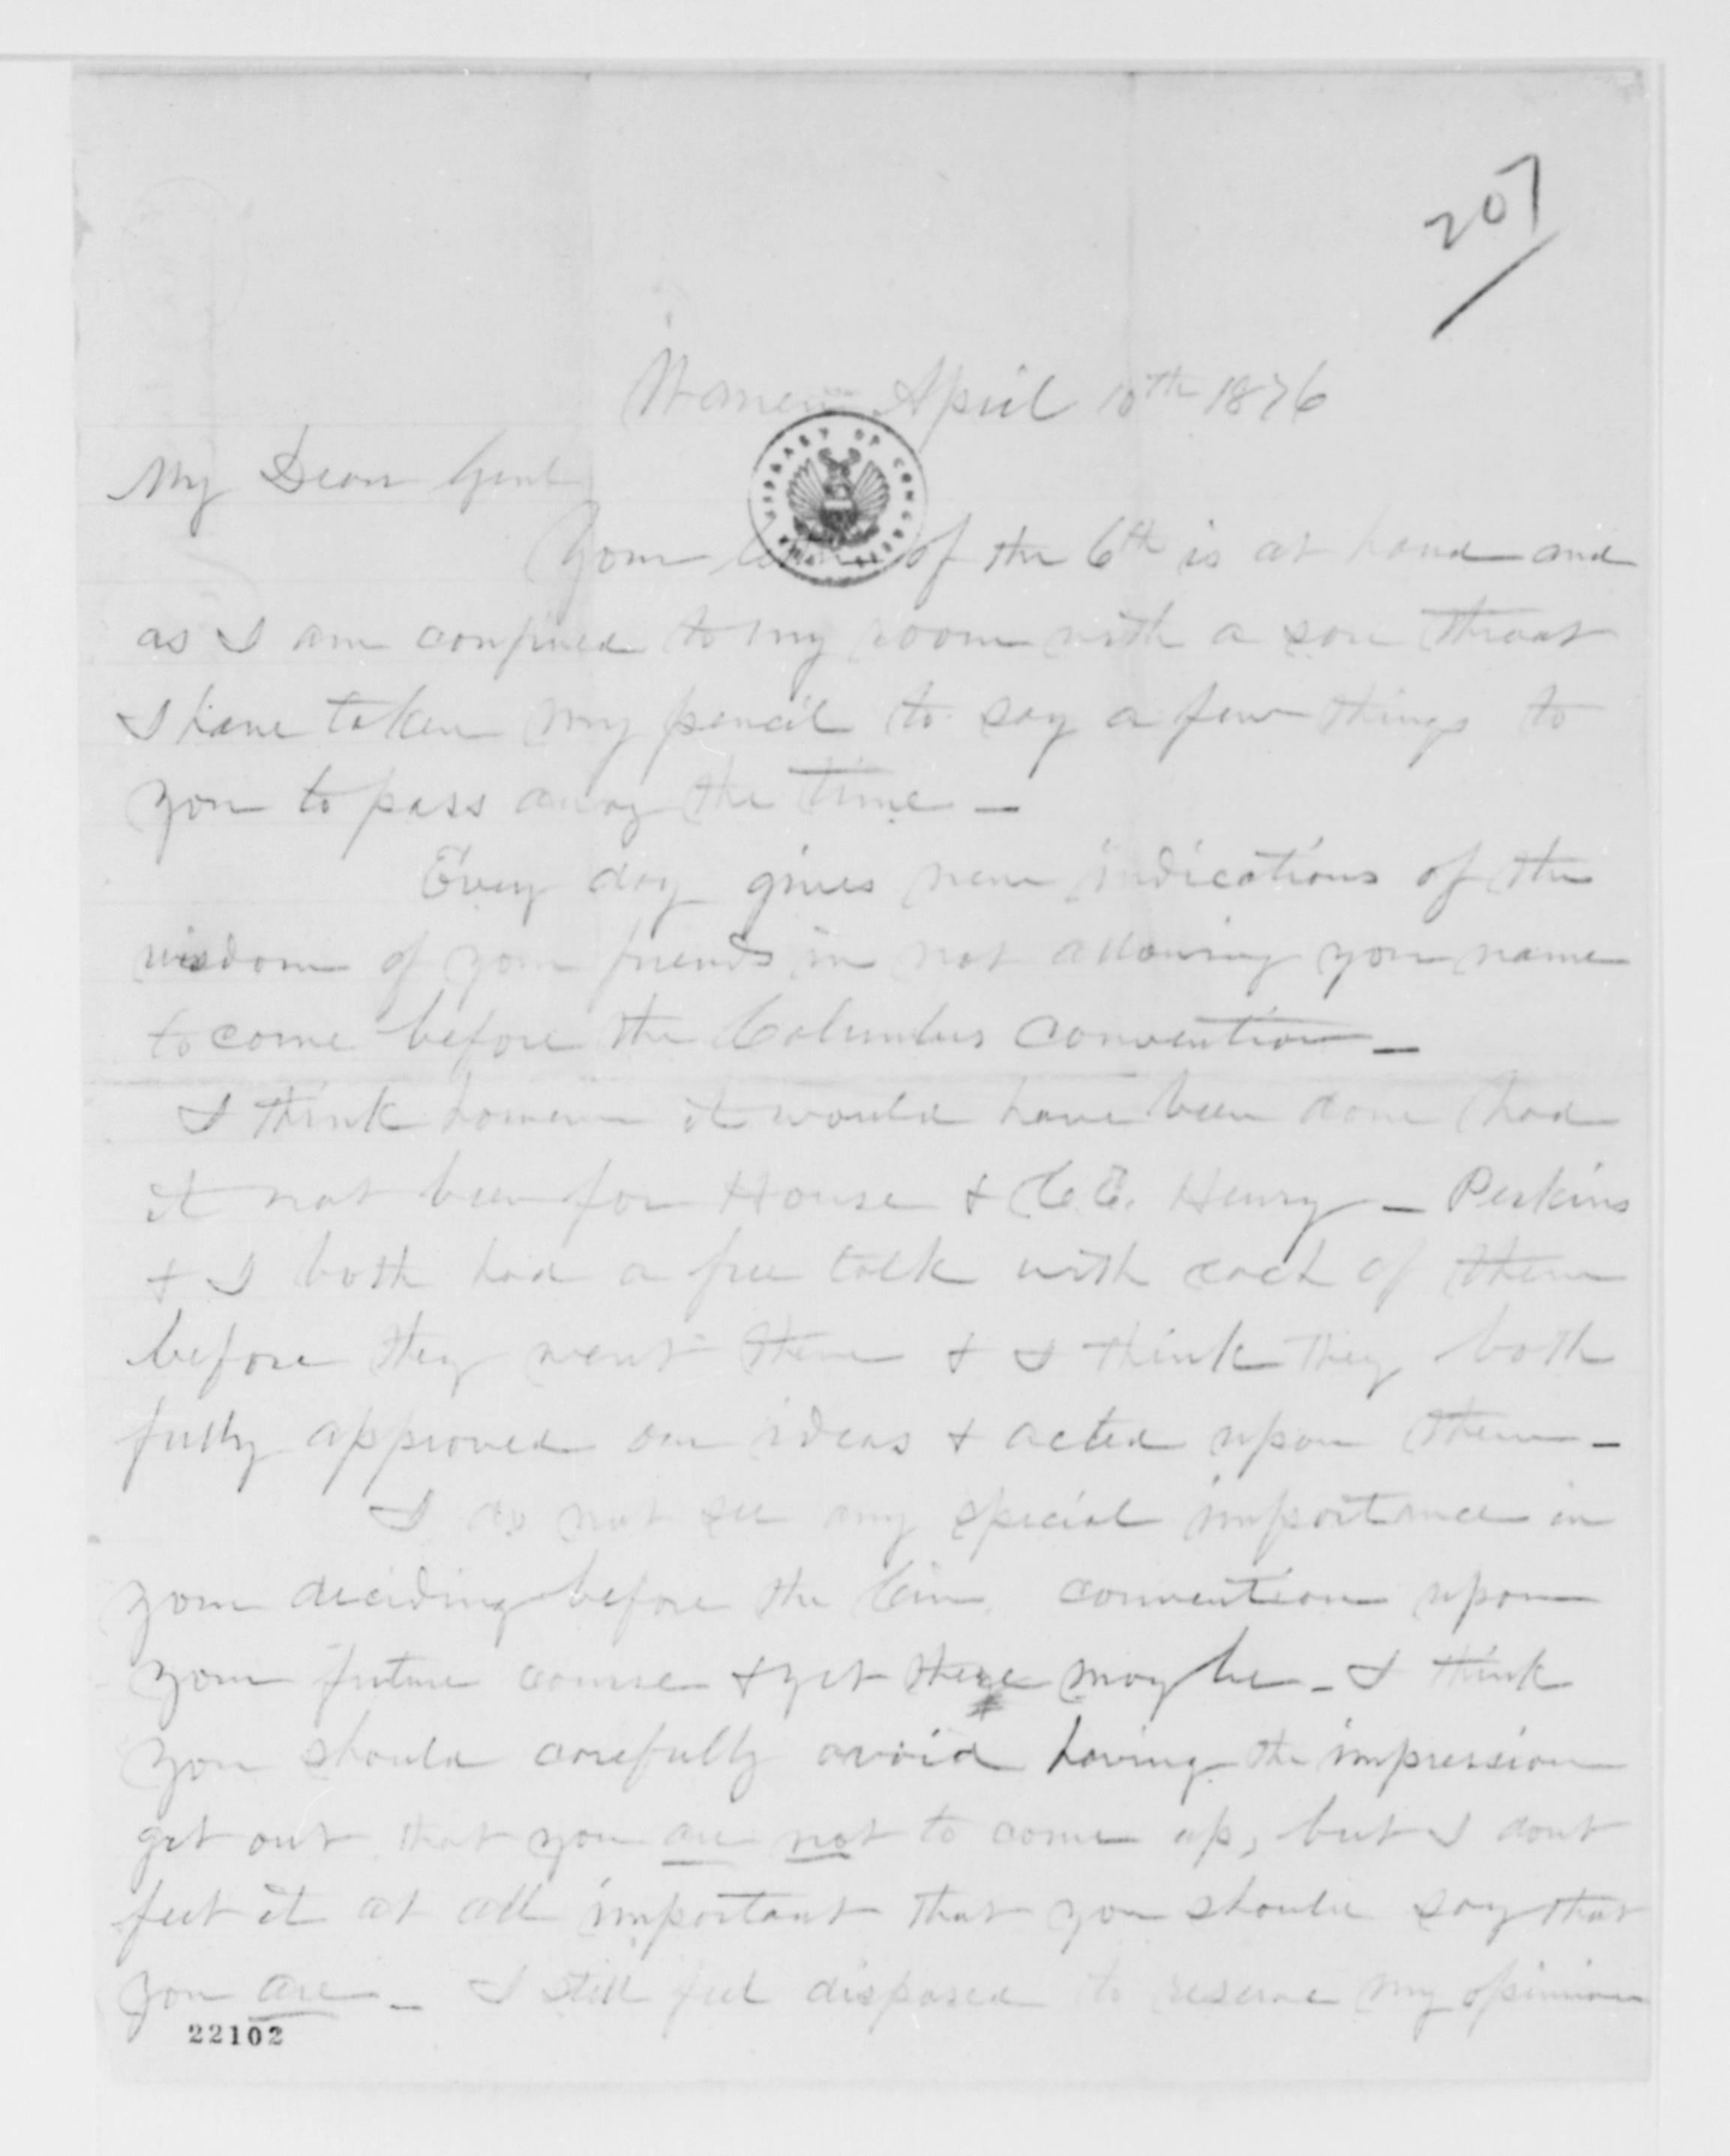 207
Warren April 10th 1876
My Dear Genl
Your letter of the 6th is at hand and
as I am confined to my room with a sore throat
I have taken my pencil to say a few things to
you to pass away the time –
Every day gives new indications of the
wisdom of your friends in not allowing your name
to come before the Columbus convention –
I think however it would have been done had
it not been for House & C.E. Henry – Perkins
& I both had a free talk with each of them
before they went there & I think they both
fully approved our ideas & acted upon them –
I do not see any special importance in
your deciding before the Cin. convention upon
your future course & yet there may be – I think
you should carefully avoid having the impression
get out that you are not to come up, but I dont
feel it at all important that you should say that
you are – I still feel disposed to reserve my opinion
22102
LIBRARY OF CONGRESS